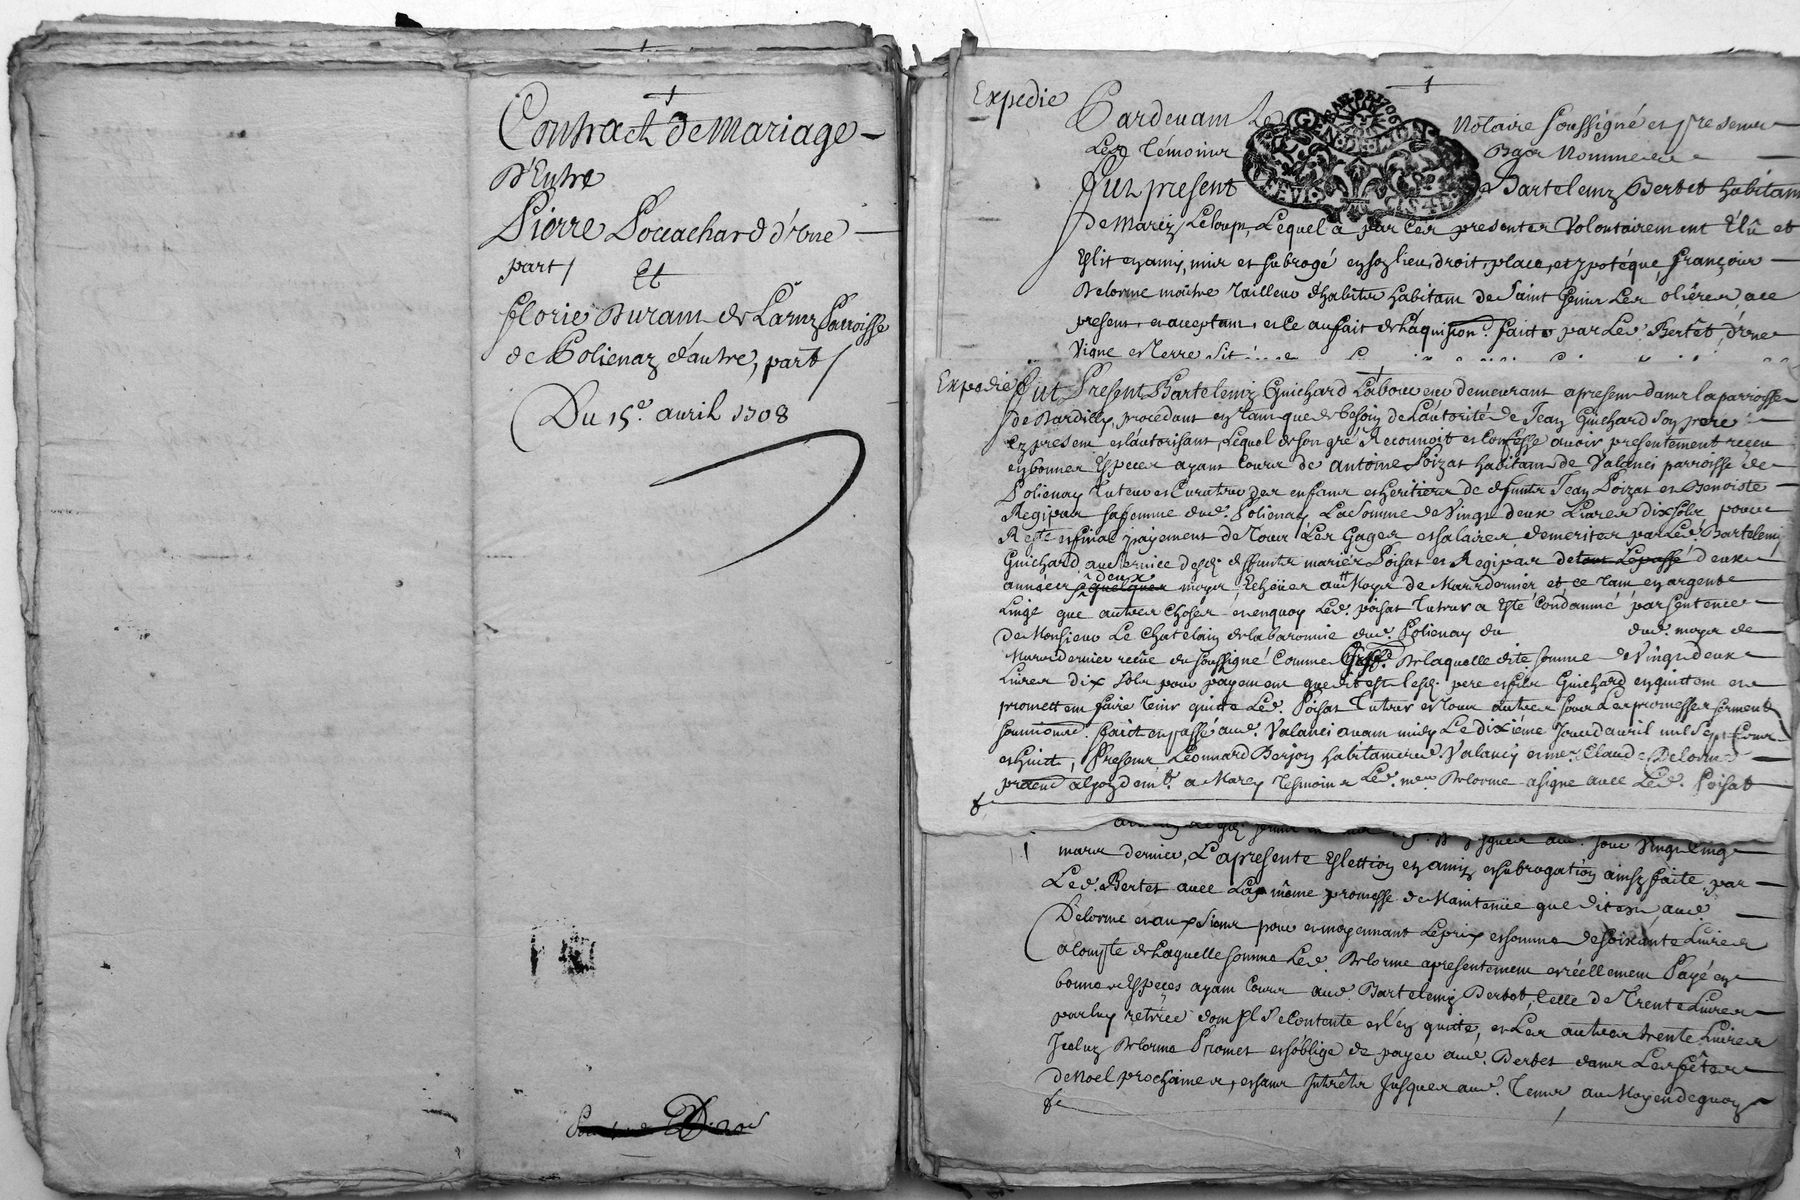 Contract de Mariage
D'Entre
Pierre Poccachard d'vne
part / Et
florie Durant de Laruz Parroisse
de Polienaz d'autre, part /
Du 15e. auril 1708
Expedie
Pardeuant Le Notaire soussigné et presents
Les témoins Bas Nommes
fut present Bartelemy Bertet habitant
De Marcy Leloup, Lequel a par ces presentes Volontairement Elû et
Eslit en amy, mis et subrogé en son lieu, droit, place, et ypotéque, françois
Delorme maitre tailleur d'habits habitant de Saint Genis Les olières ace
present et acceptant, et ce au fait de l'aquisition faicte par Led. Bertêt, d'vne
Vigne et Terre
Expedie
fut Present Bartelemy Guichard Laboureur demeurant apresent dans la parroisse
de Dardilly, procédant en tant que de besoin de L'autorité de Jean Guichard son pere
cy present et l'autorisant, Lequel de son gré Reconnoit et Confesse auoir presentement reçeu
en bonnes Especes ayant Cours de Antoine Poizat habitant de Valanci parroisse de
Polienay Tuteur et Curateur des enfans et heritiers de deffunts Jean Poizat et Benoiste
Regipas sa femme dud. Polienay La Somme de Vingt deux Liures dix sols pour
Reste et final payement de Tous Les Gages et salaires demerités par Led. Bartelemy
Guichard au seruice desd. deffunts mariés Poizat et Regipas de tout Lepassé deux
années et quelques deux mois Echeües au Moys de Mars dernier, et ce tant en argent
Linge que autres choses, et en quoy Led. Poisat Tuteur a Esté Condamné par sentence
de Monsieur Le Chatelain de la baronnie dud. Polienay du dud. moys de
Mars dernier recüe du soussigné Comme Greff. De laquelle dite somme de Vingt deux
Liures dix sols pour payement que dit est lesd. pere et fils Guichard en quittent et
promettent faire Tenir quitte Led. Poisat Tuteur et tous autres sous Les promesses serment
soumiond. faict et passé aud. Valanci auant midy Le dixiéme Jour d'auril mil Sept Cent
et huict, Presents Leonnard Berjon habitant dud. Valancy et me. Claude Delorme
a Marcy Tesmoins Led. me. Delorme a signé auec Led. Poisat
mars dernier, L'apresente Eslettion en amy et subrogation ainsy faite par
Led. Bertet auec La même promesse de Maintenüe que dit est, aud.
Delorme et aux siens pour et moyennant Leprix et somme de soixante Liures
acompte de Laquelle somme Led. Delorme apresentement et réellement Payé en
bonnes Especes ayant Cours aud. Bartelemy Bertet, Celle de Trente Liures
par luy retirée dont Il se Contente et l'en quitte, et Les autres trente Liures
Iceluy Delorme Promet et s'oblige de payer aud. Bertet dans Les fêtes
de Noel prochaines, et sans Intrêts Jusques aud. Tems au Moyen de quoy